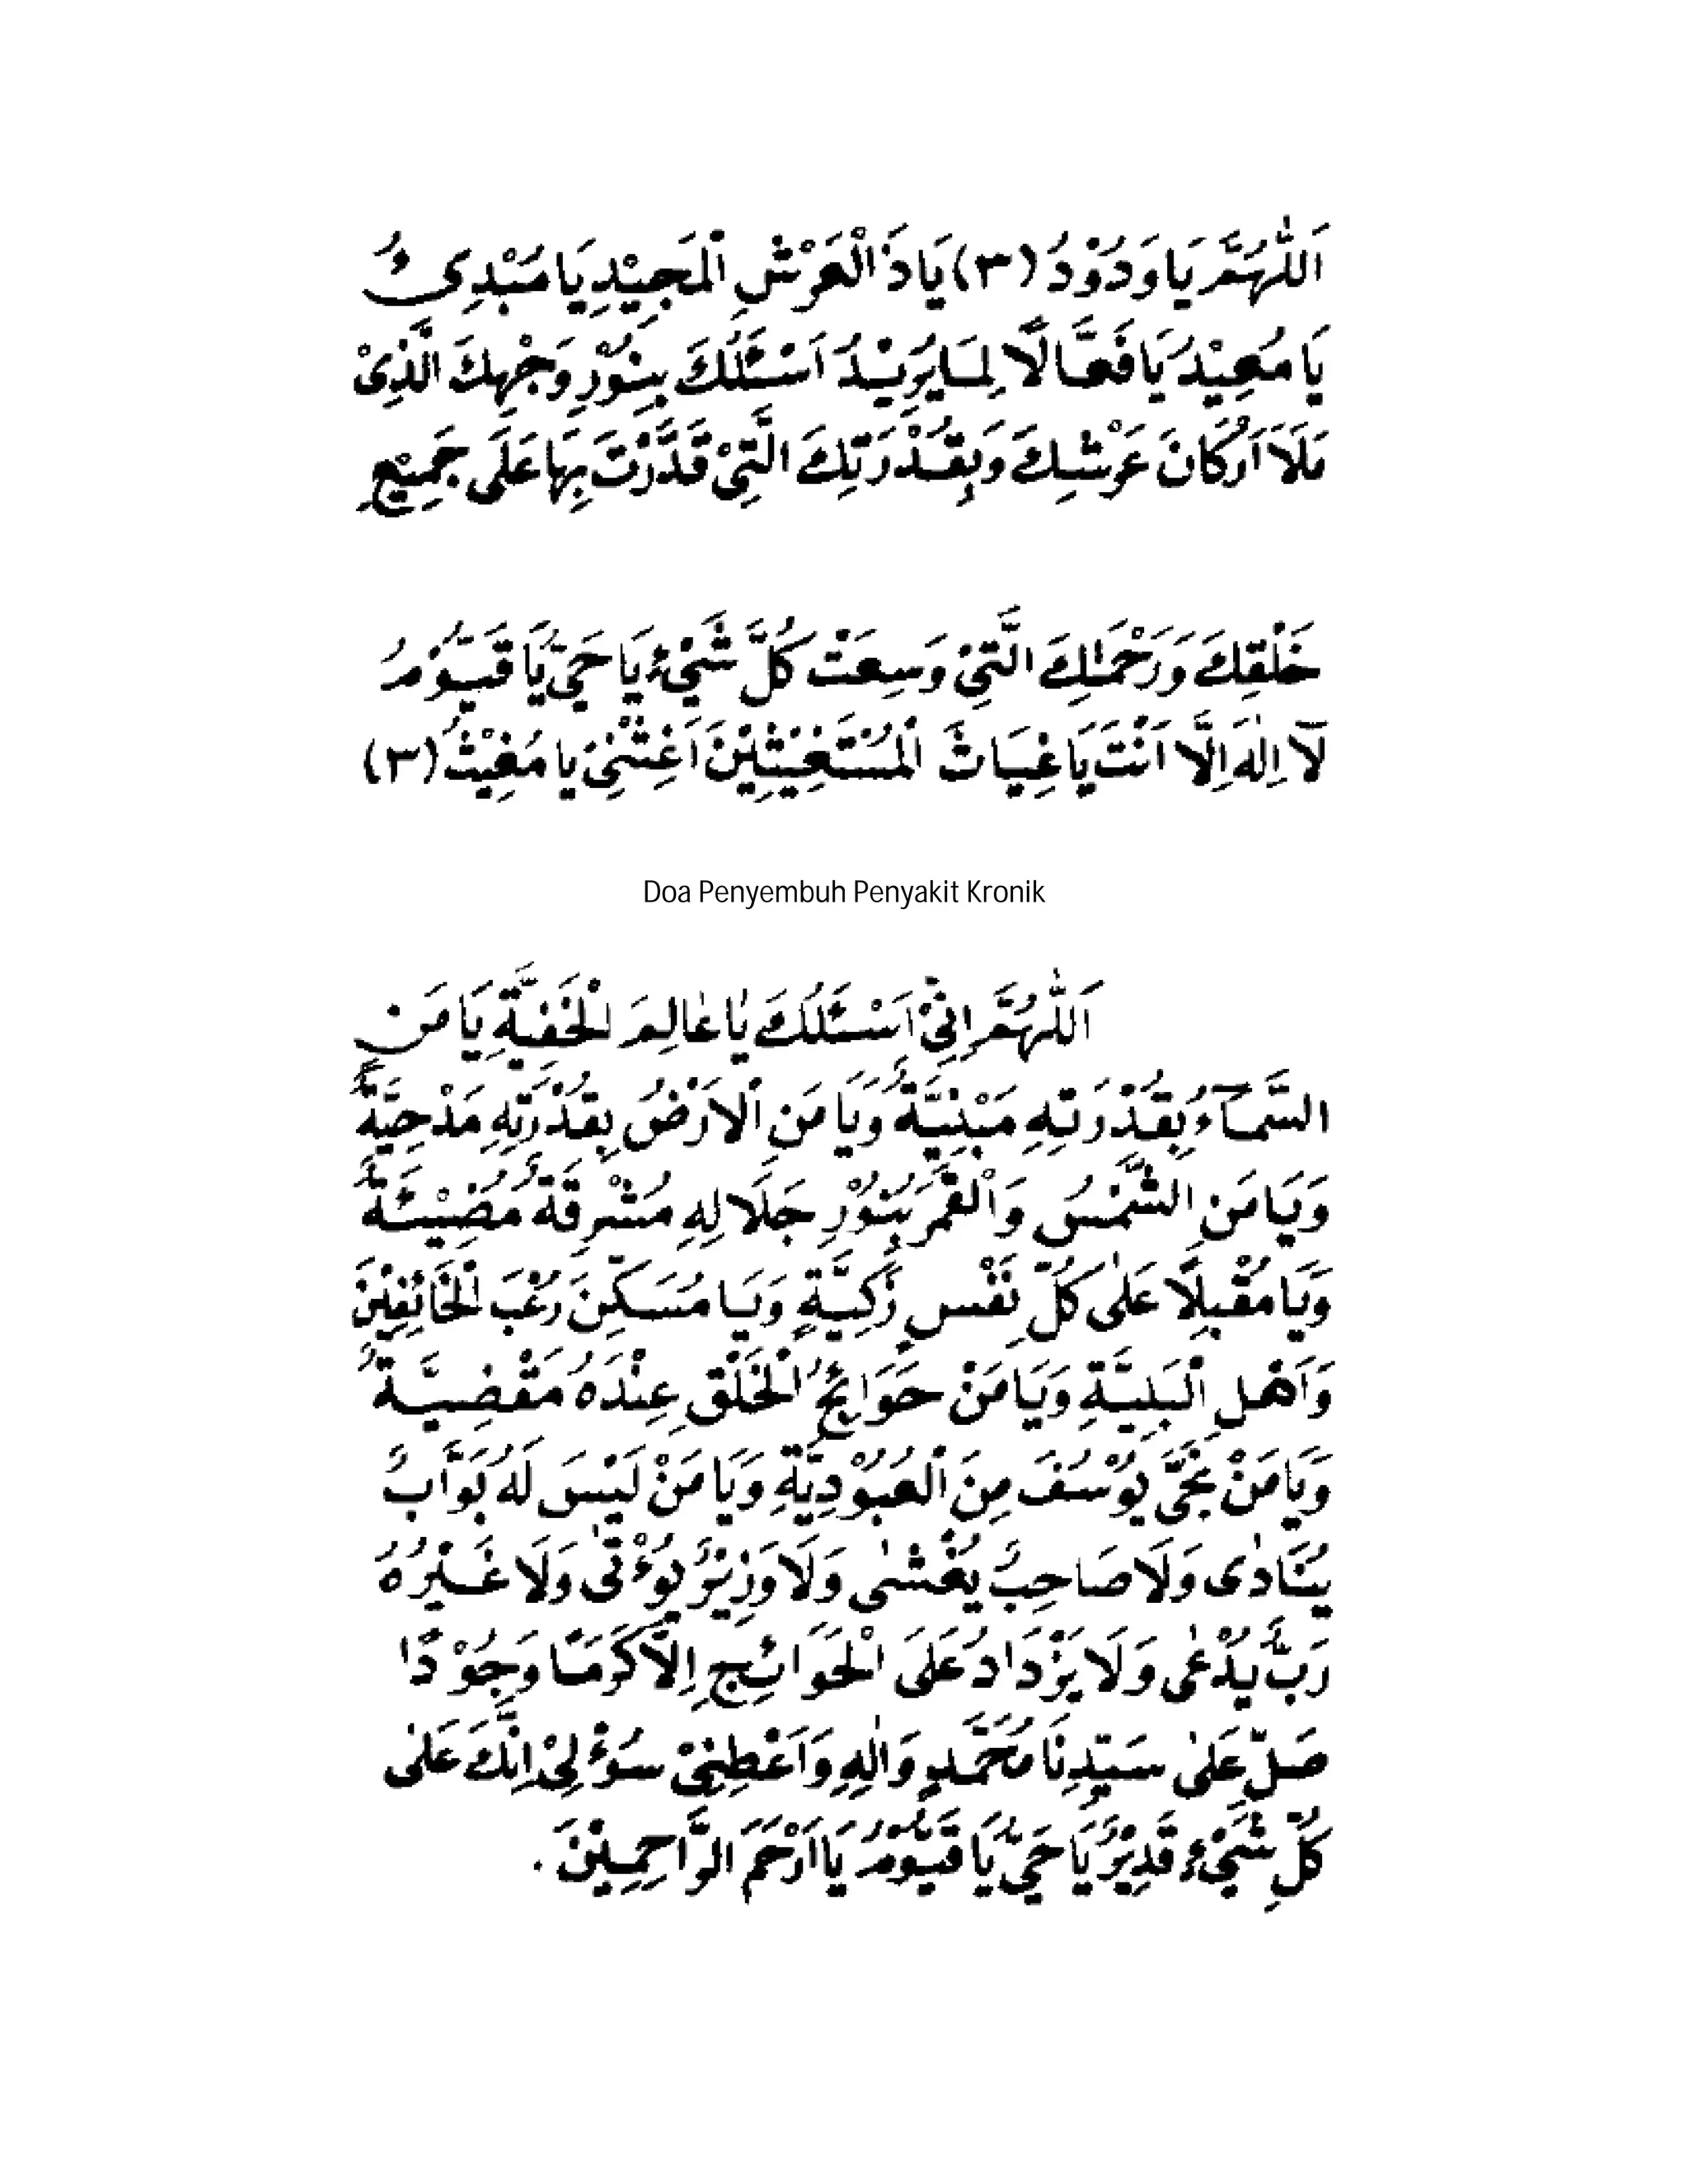 اَللّٰهُمَّ يَا وَدُوْدُ (٣) يَا ذَا الْعَرْشِ الْمَجِيْدِ يَا مُبْدِئُ
يَا مُعِيْدُ يَا فَعَّالًا لِمَا يُرِيْدُ اَسْئَلُكَ بِنُوْرِ وَجْهِكَ الَّذِىْ
مَلَاَ اَرْكَانَ عَرْشِكَ وَبِقُدْرَتِكَ الَّتِىْ قَدَّرْتَ بِهَا عَلَى جَمِيْعِ
خَلْقِكَ وَرَحْمَتِكَ الَّتِىْ وَسِعَتْ كُلَّ شَيْءٍ يَا حَيُّ يَا قَيُّوْمُ
لَآ اِلٰهَ اِلَّا اَنْتَ يَا غِيَاثَ الْمُسْتَغِيْثِيْنَ اَغِثْنِىْ يَا مُغِيْثُ (٣)
Doa Penyembuh Penyakit Kronik
اَللّٰهُمَّ اِنِّىْ اَسْئَلُكَ يَا عَالِمَ الْخَفِيَّةِ يَا مَنِ
السَّمَآءُ بِقُدْرَتِهِ مَبْنِيَّةٌ وَيَا مَنِ الْاَرْضُ بِقُدْرَتِهِ مَدْحِيَّةٌ
وَيَا مَنِ الشَّمْسُ وَالْقَمَرُ بِنُوْرِ جَلَالِهِ مُشْرِقَةٌ مُضِيْئَةٌ
وَيَا مُقْبِلًا عَلٰى كُلِّ نَفْسٍ زَكِيَّةٍ وَيَا مُسَكِّنَ رُعْبَ الْخَائِفِيْنَ
وَاَهْلِ الْبَلِيَّةِ وَيَا مَنْ حَوَائِجُ الْخَلْقِ عِنْدَهُ مَقْضِيَّةٌ
وَيَا مَنْ نَجَّى يُوْسُفَ مِنَ الْعُبُوْدِيَّةِ وَيَا مَنْ لَيْسَ لَهُ بَوَّابٌ
يُنَادٰى وَلَا صَاحِبٌ يُغْشٰى وَلَا وَزِيْرٌ يُوْءْتٰى وَلَا غَيْرُهُ
رَبٌّ يُدْعٰى وَلَا يَزْدَادُ عَلَى الْحَوَائِجِ اِلَّا كَرَمًا وَجُوْدًا
صَلِّ عَلٰى سَيِّدِنَا مُحَمَّدٍ وَاٰلِهِ وَاَعْطِنِىْ سُوْءْلِىْ اِنَّكَ عَلٰى
كُلِّ شَيْءٍ قَدِيْرٌ يَا حَيُّ يَا قَيُّوْمُ يَا اَرْحَمَ الرَّاحِمِيْنَ .